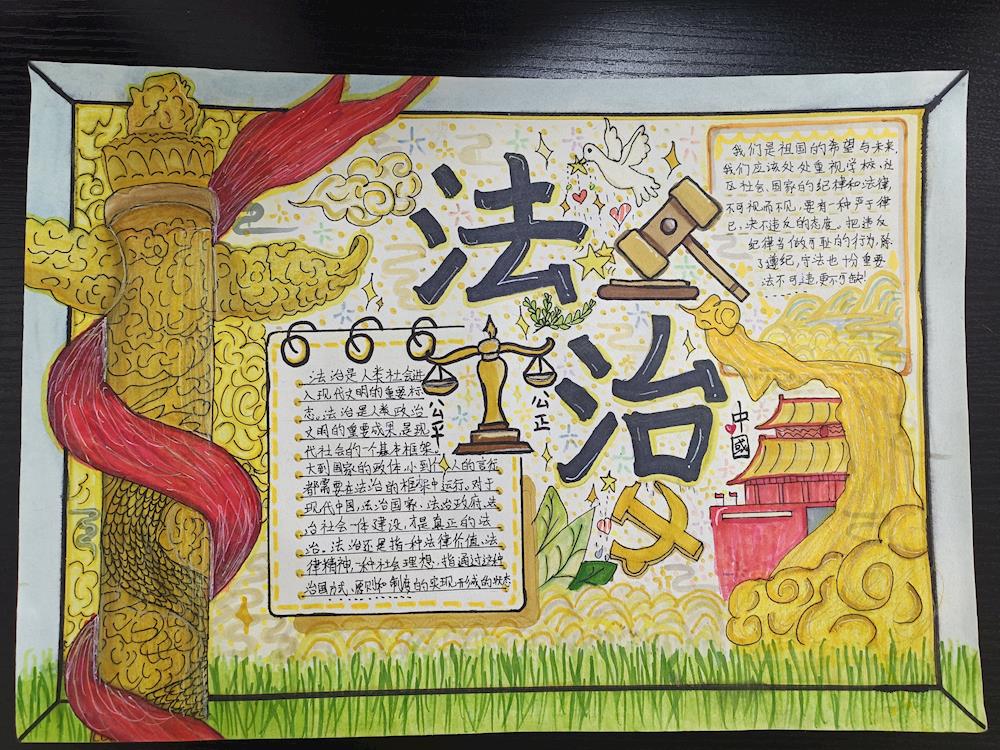 法治
我们是祖国的希望与未来,
我们应该处处重视学校、社
区社会、国家的纪律和法律,
不可视而不见,要有一种严于律
己,决不违反的态度。把违反
纪律当做可耻的行为,除
了遵纪,守法也十分重要
法不可违,更不可缺!
法治是人类社会进
入现代文明的重要标
志。法治是人类政治
文明的重要成果,是现
代社会的一个基本框架。
大到国家的政体,小到个人的言行
都需要在法治的框架中运行。对于
现代中国,法治国家、法治政府、法
治社会一体建设,才是真正的法
治。法治还是指一种法律价值、法
律精神,一种社会理想,指通过这种
治国方式、原则和制度的实现形成的状态
公平
公正
中國